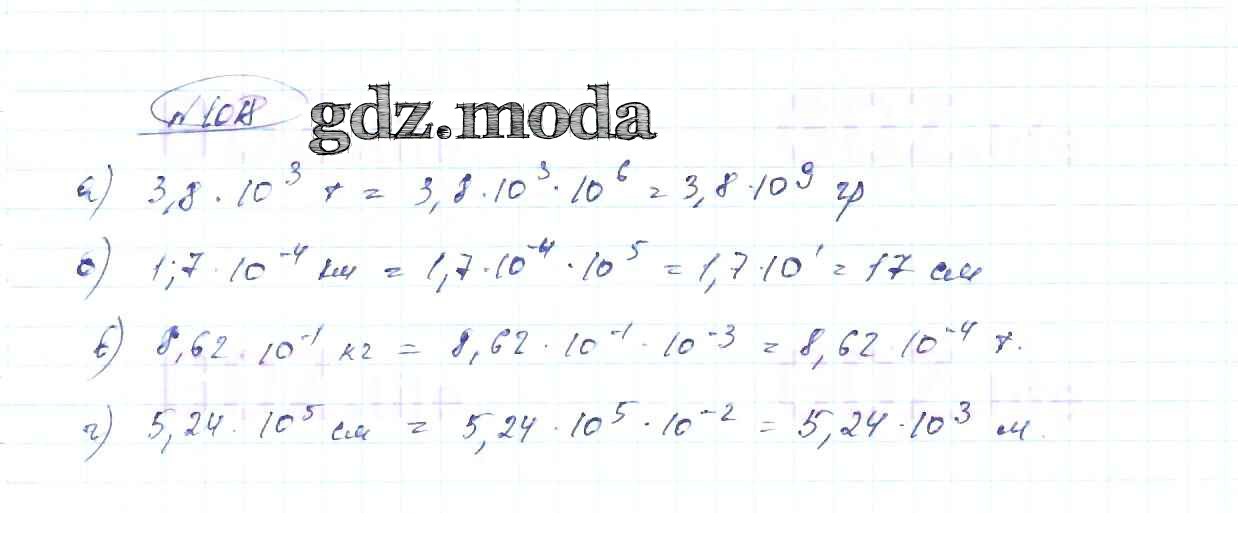 gdz.moda
а) 3,8 · 10³ т = 3,8 · 10³ · 10⁶ = 3,8 · 10⁹ гр
б) 1,7 · 10⁻⁴ км = 1,7 · 10⁻⁴ · 10⁵ = 1,7 · 10¹ = 17 см
в) 8,62 · 10⁻¹ кг = 8,62 · 10⁻¹ · 10⁻³ = 8,62 · 10⁻⁴ т.
г) 5,24 · 10⁵ см = 5,24 · 10⁵ · 10⁻² = 5,24 · 10³ м.